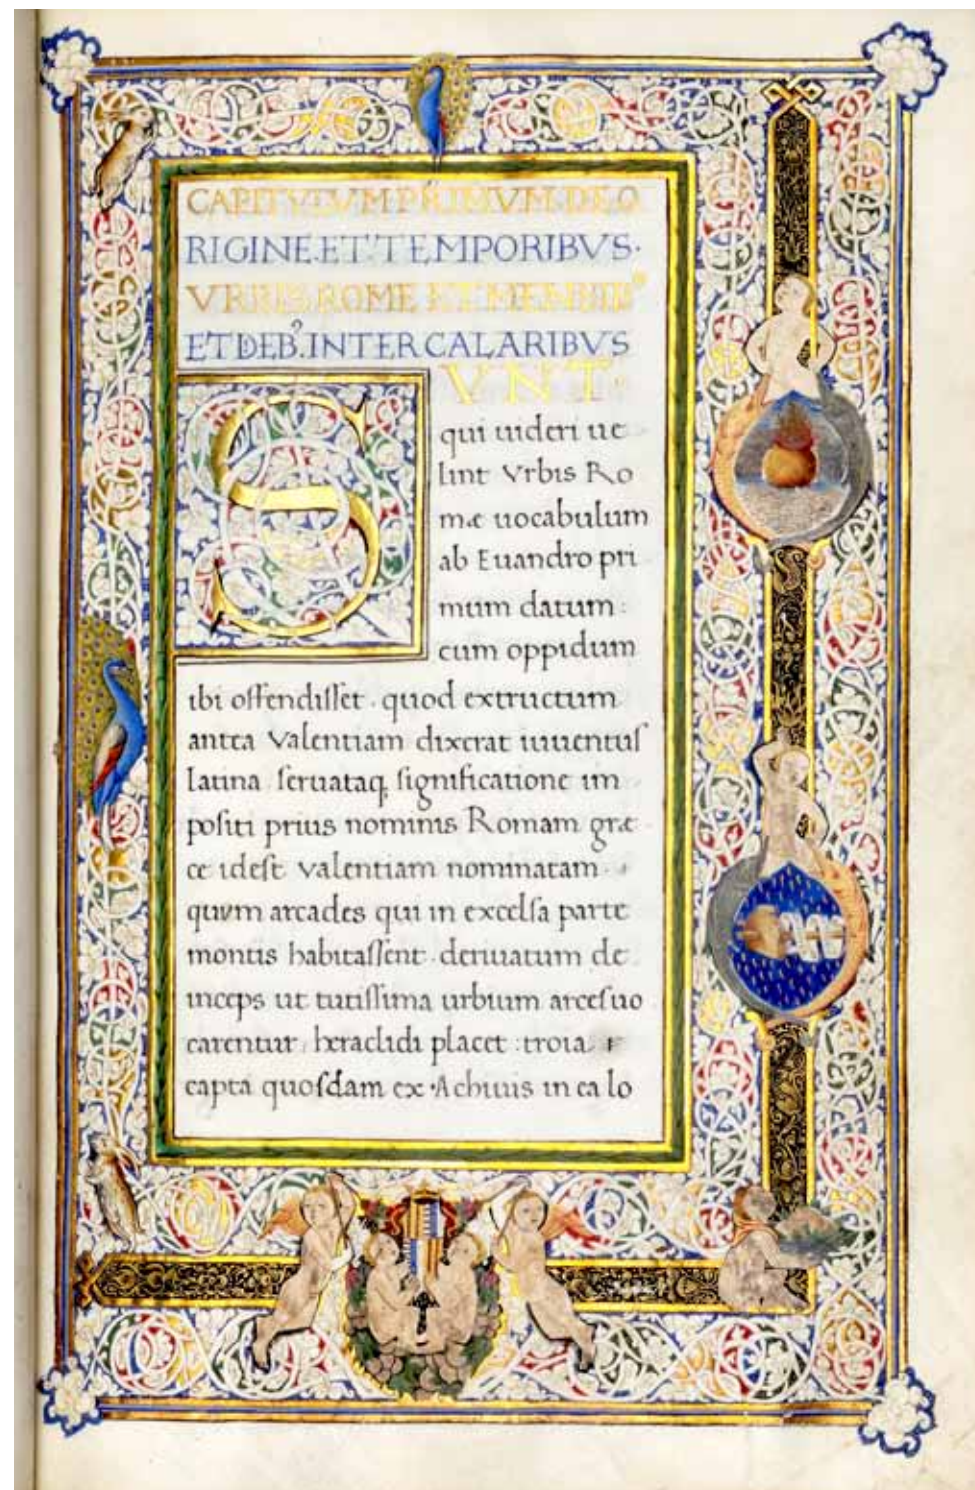 CAPITVLVM PRIMVM. DE. O
RIGINE. ET. TEMPORIBVS.
VRBIS. ROME ET. MENSIB⁹
ET DEB⁹. INTERCALARIBVS
SVNT.
qui uideri ue
lint Vrbis Ro
mæ uocabulum
ab Euandro pri
mum datum :
cum oppidum
ibi offendisset . quod extructum
antea Valentiam dixerat iuuentuſ
latina seruataq; significatione im
positi prius nominis Romam græ
ce idest Valentiam nominatam .
quum arcades qui in excelsa parte
montis habitassent . deriuatum de
inceps ut tutissima urbium arces uo
carentur . heraclidi placet : troia
capta quosdam ex . Achiuis in ea lo